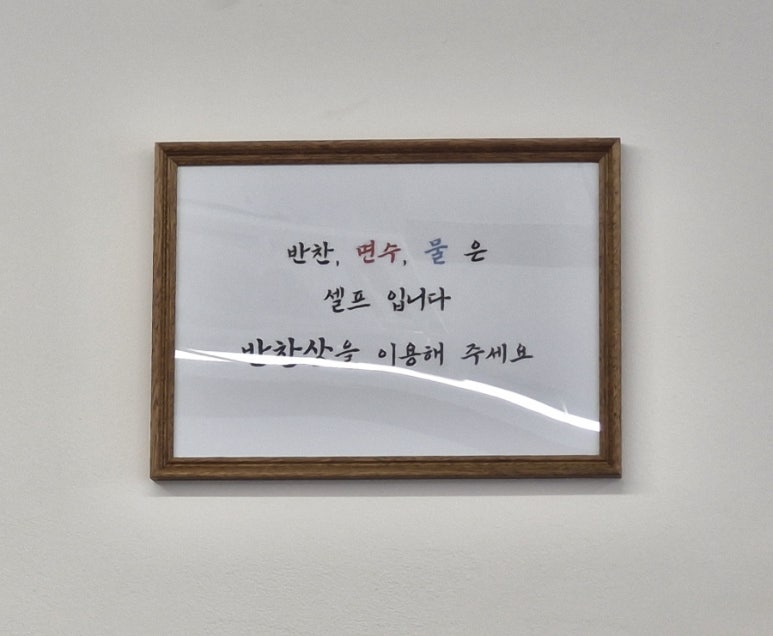 반찬, 면수, 물 은
셀프 입니다
반찬상을 이용해 주세요